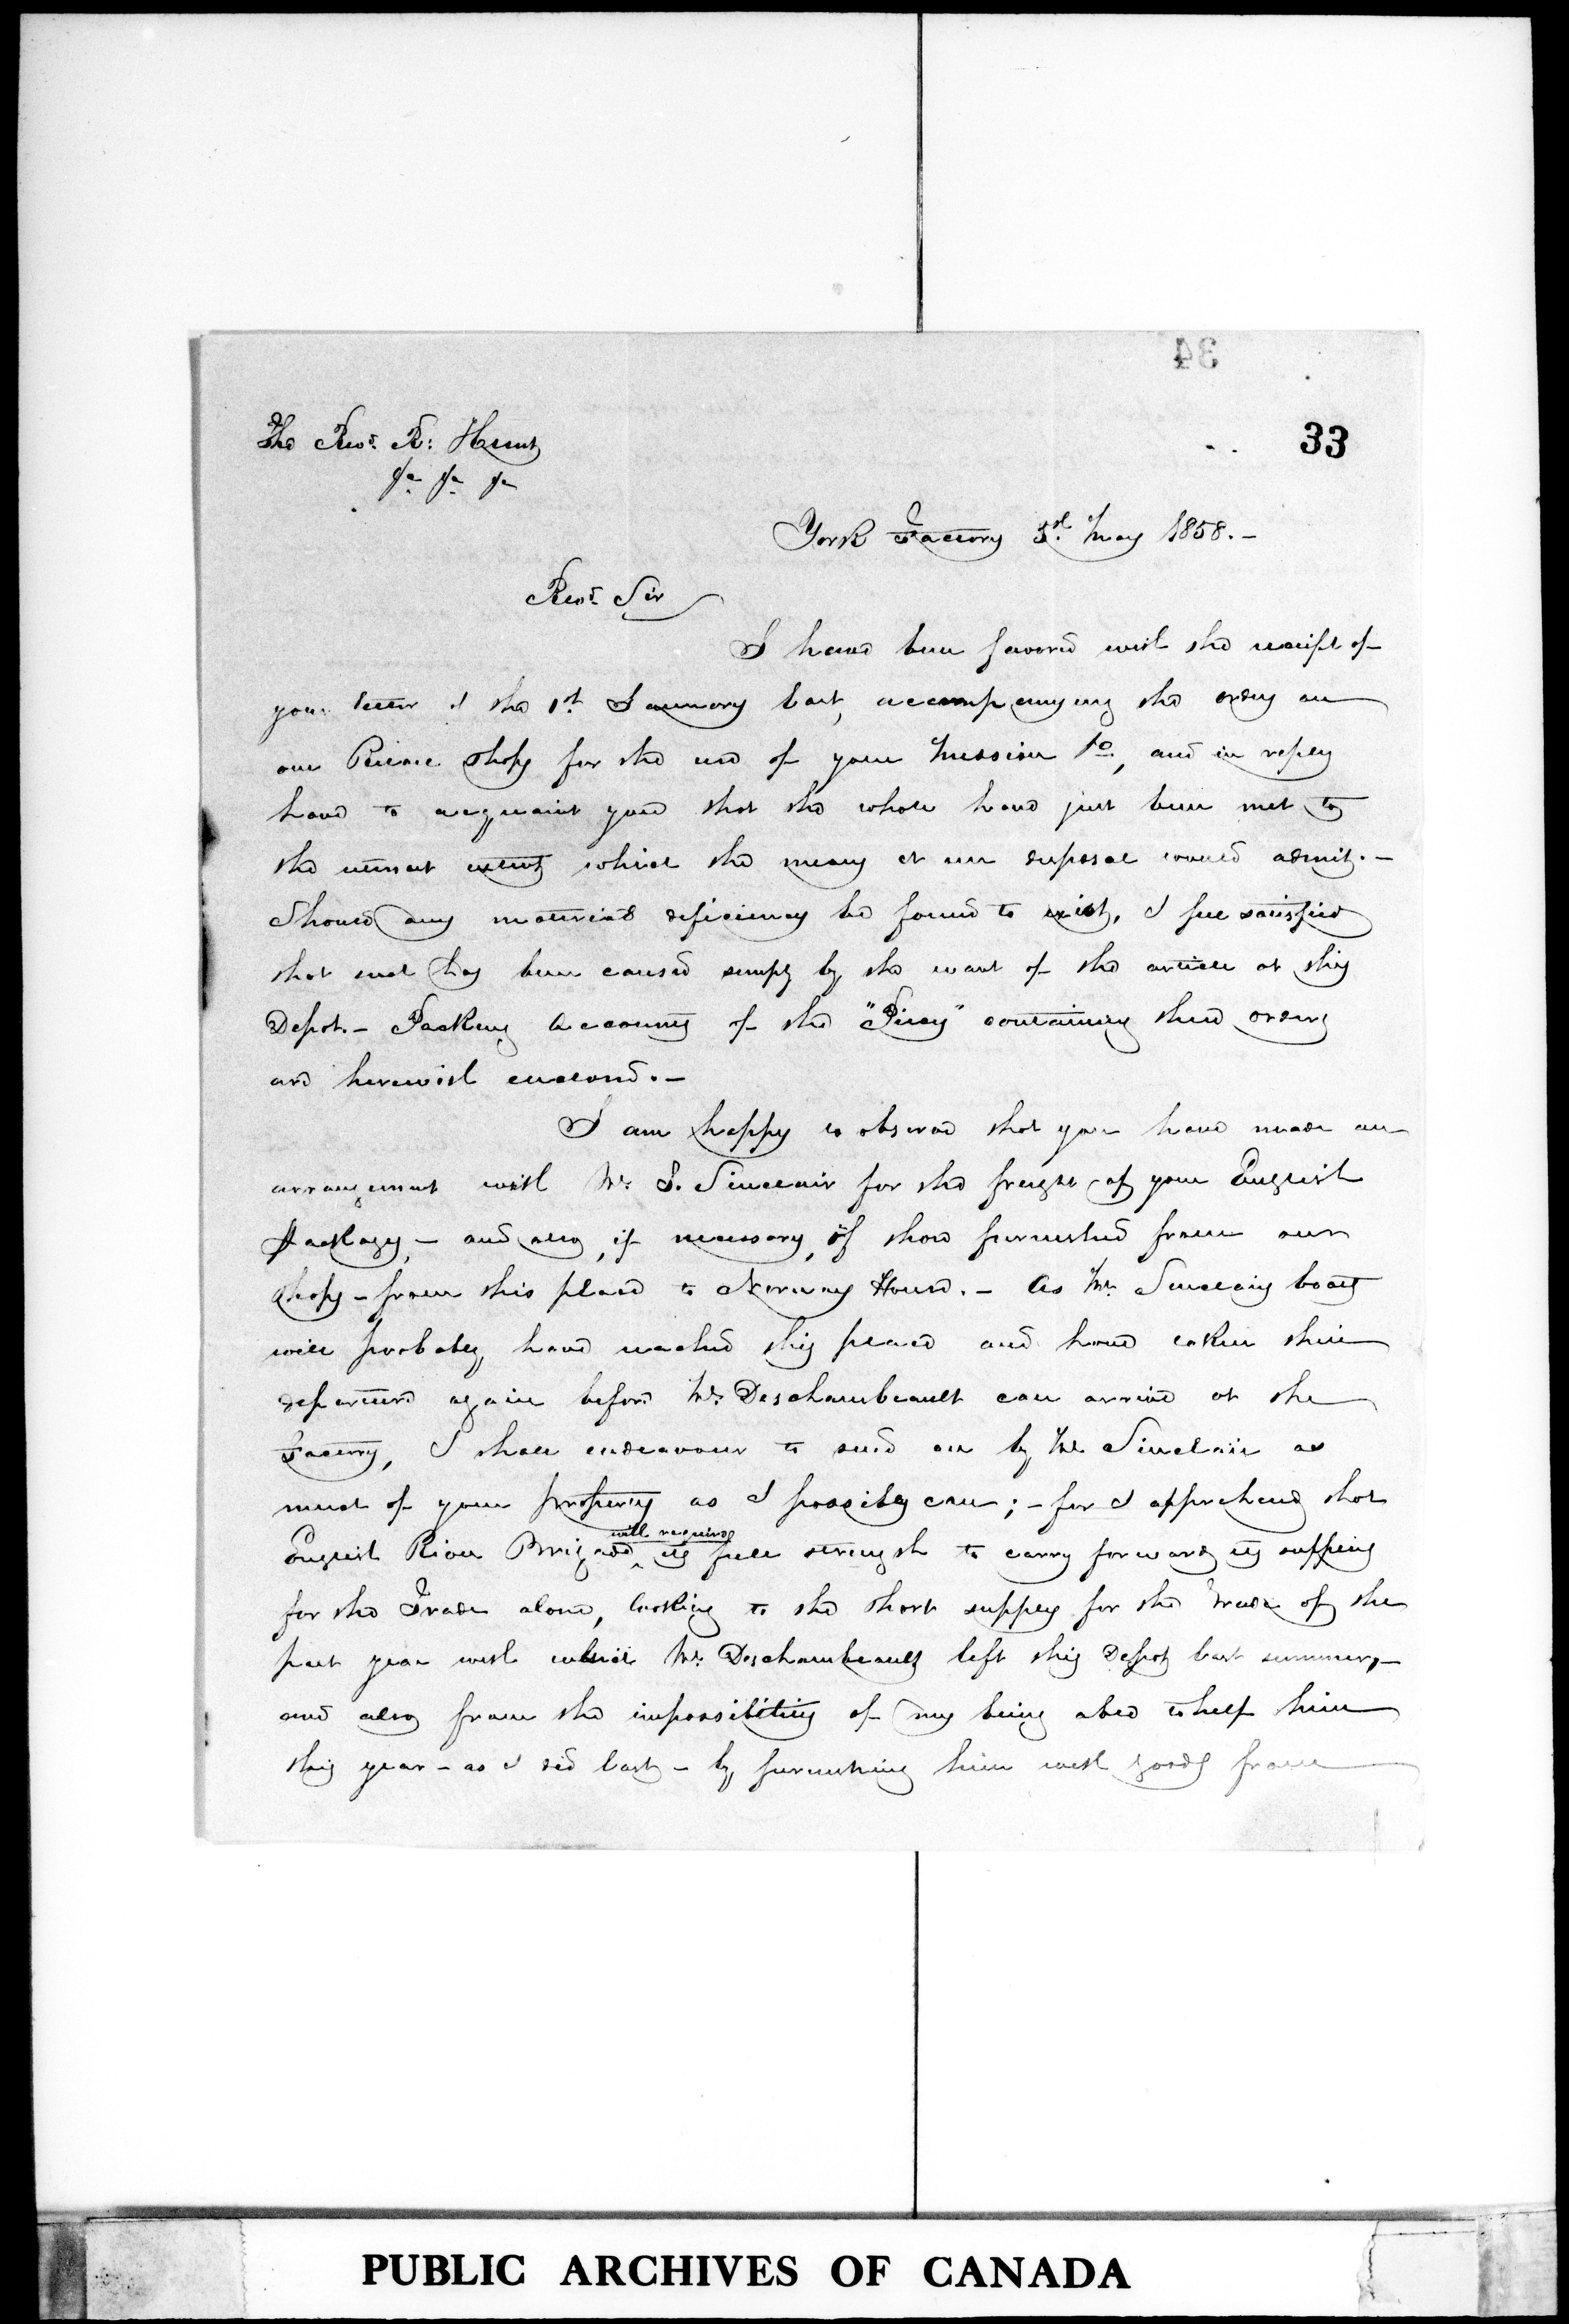 34
33
The Revd. R. Hunt
&c &c &c
York Factory 3d. May 1858.-
Revd. Sir
I have been favored with the receipt of
your letter of the 1st January last, accompanying the orders on
our Retail shops for the use of your Mission &c, and in reply
have to acquaint you that the whole have just been met to
the utmost extent which the means at our disposal would admit.-
Should any material deficiency be found to exist, I feel satisfied
that such has been caused simply by the want of the article at this
Depot.- Packing Accounts of the "Pieces" containing these orders
are herewith enclosed.-
I am happy to observe that you have made an
arrangement with Mr. Sinclair for the freight of your English
Packages,- and also, if necessary, of those furnished from our
shops - from this place to Norway House.- As Mr. Sinclairs boats
will probably have reached this place and have taken their
departure again before Mr. Deschambeault can arrive at the
Factory, I shall endeavour to send on by Mr. Sinclair as
much of your property as I possibly can;- for I apprehend that
will require
English River Brigade its full strength to carry forward its supplies
for the Trade alone, looking to the short supply for the Trade of the
past year with which Mr. Deschambeault left this Depot last summer,-
and also from the impossibility of my being able to help him
this year - as I did last - by furnishing him with goods from
PUBLIC ARCHIVES OF CANADA